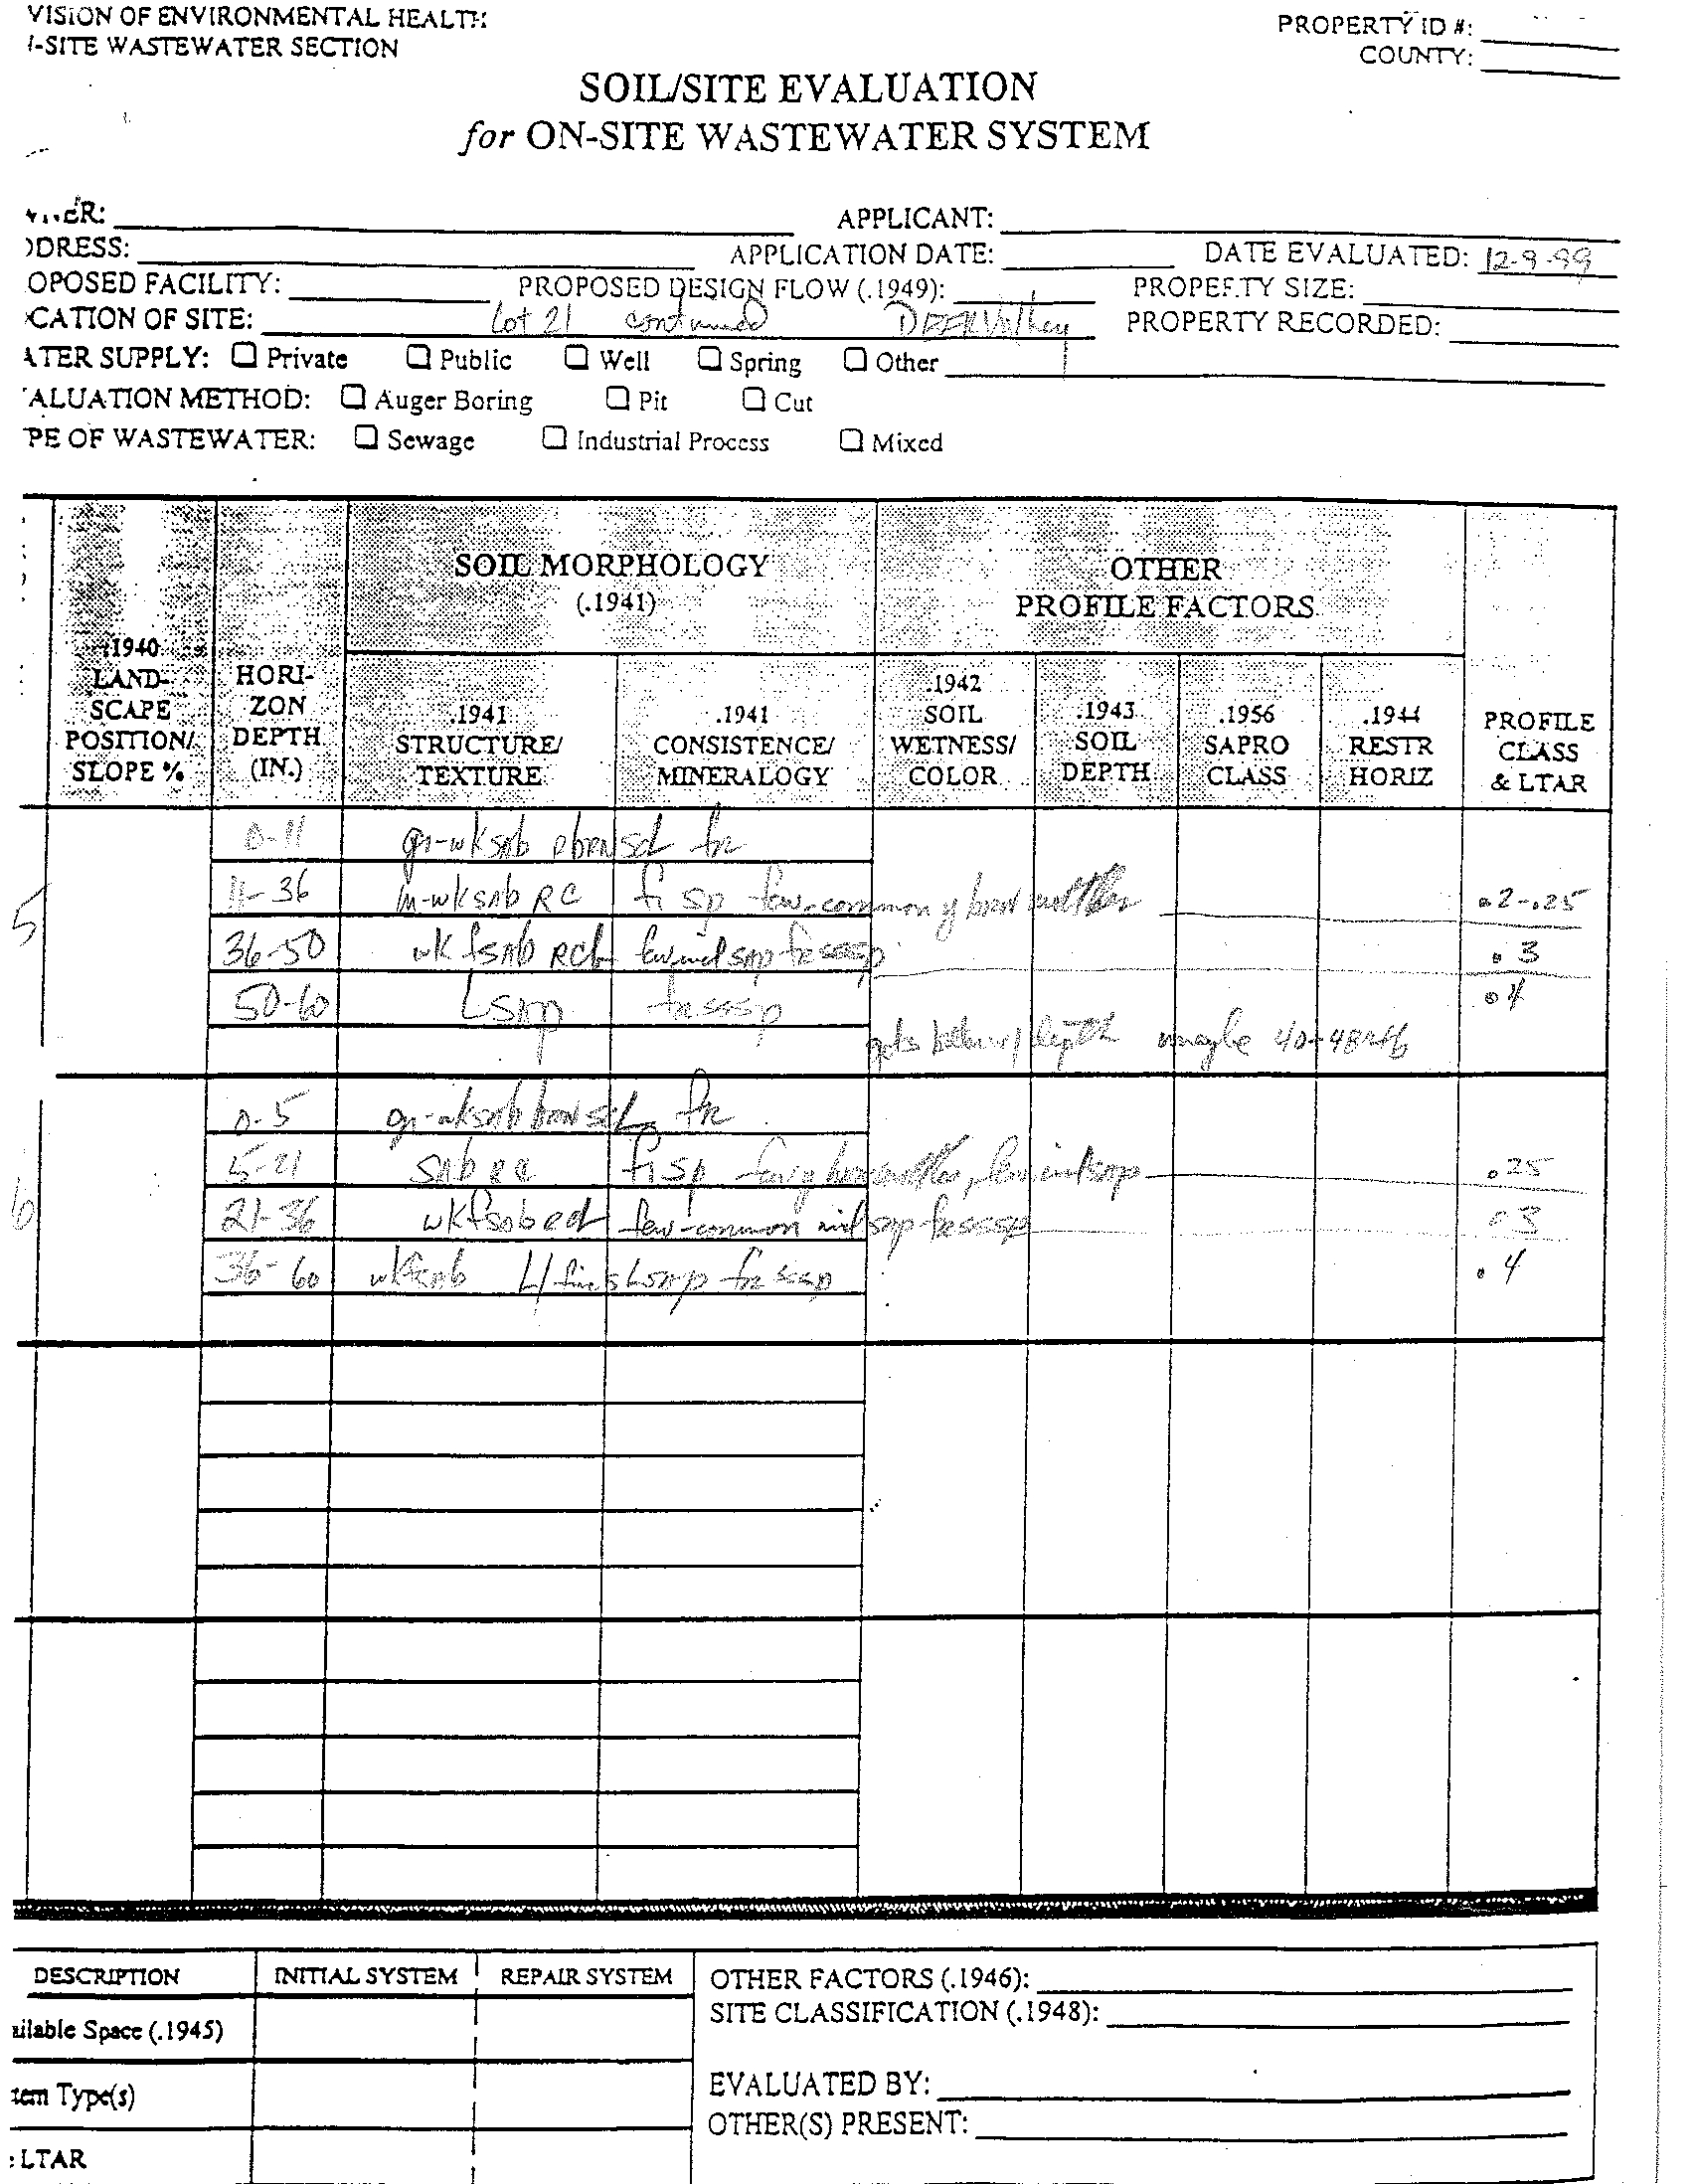 VISION OF ENVIRONMENTAL HEALTH
PROPERTY ID #:
-SITE WASTEWATER SECTION
COUNTY:
SOIL/SITE EVALUATION
for ON-SITE WASTEWATER SYSTEM
ER:
APPLICANT:
DDRESS:
APPLICATION DATE:
DATE EVALUATED: 12-9-99
OPOSED FACILITY:
PROPOSED DESIGN FLOW (.1949):
PROPERTY SIZE:
CATION OF SITE: Lot 21 continued DEER Valley
PROPERTY RECORDED:
ATER SUPPLY: ☐ Private ☐ Public ☐ Well ☐ Spring ☐ Other
ALUATION METHOD: ☐ Auger Boring ☐ Pit ☐ Cut
PE OF WASTEWATER: ☐ Sewage ☐ Industrial Process ☐ Mixed
SOIL MORPHOLOGY
(.1941)
OTHER
PROFILE FACTORS
.1940
LAND-
SCAPE
POSITION/
SLOPE %
HORI-
ZON
DEPTH
(IN.)
.1941
STRUCTURE/
TEXTURE
.1941
CONSISTENCE/
MINERALOGY
.1942
SOIL
WETNESS/
COLOR
.1943
SOIL
DEPTH
.1956
SAPRO
CLASS
.1944
RESTR
HORIZ
PROFILE
CLASS
& LTAR
5
0-11 gr-wksab scl fr
11-36 m-wksab RC fi sp few-common y brn mottles .2-.25
36-50 wk fsab RCL fr sssp .3
50-60 Lsap fr sssp .4
gets better w/ depth maybe 40-48
6
0-5 gr-wksab brn scl fr
5-21 sab RC fi sp few y brn mottles, few incl sap .25
21-36 wkfsab few-common incl sap fr sssp .3
36-60 wkfsab fr sssp .4
DESCRIPTION
INITIAL SYSTEM
REPAIR SYSTEM
OTHER FACTORS (.1946):
SITE CLASSIFICATION (.1948):
ailable Space (.1945)
EVALUATED BY:
tem Type(s)
OTHER(S) PRESENT:
LTAR